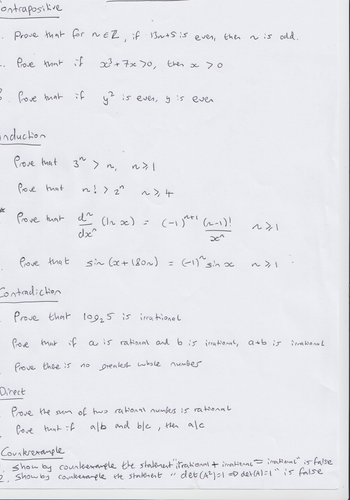 Contrapositive
. Prove that for n ∈ Z, if 13n+5 is even, then n is odd.
. Prove that if x³ + 7x > 0, then x > 0
Prove that if y² is even, y is even
Induction
Prove that 3ⁿ > n, n ⩾ 1
Prove that n! > 2ⁿ n ⩾ 4
* Prove that dⁿ/dxⁿ (ln x) = (-1)ⁿ⁺¹ (n-1)!/xⁿ n ⩾ 1
Prove that sin(x + 180n) = (-1)ⁿ sin x n ⩾ 1
Contradiction
Prove that log₂5 is irrational
Prove that if a is rational and b is irrational, a+b is irrational
Prove there is no greatest whole number
Direct
Prove the sum of two rational numbers is rational
Prove that if a/b and b/c, then a/c
Counterexample
1. Show by counterexample the statement "irrational + irrational = irrational" is false
2. Show by counterexample the statement "det(A²)=1 ⇒ det(A)=1" is false